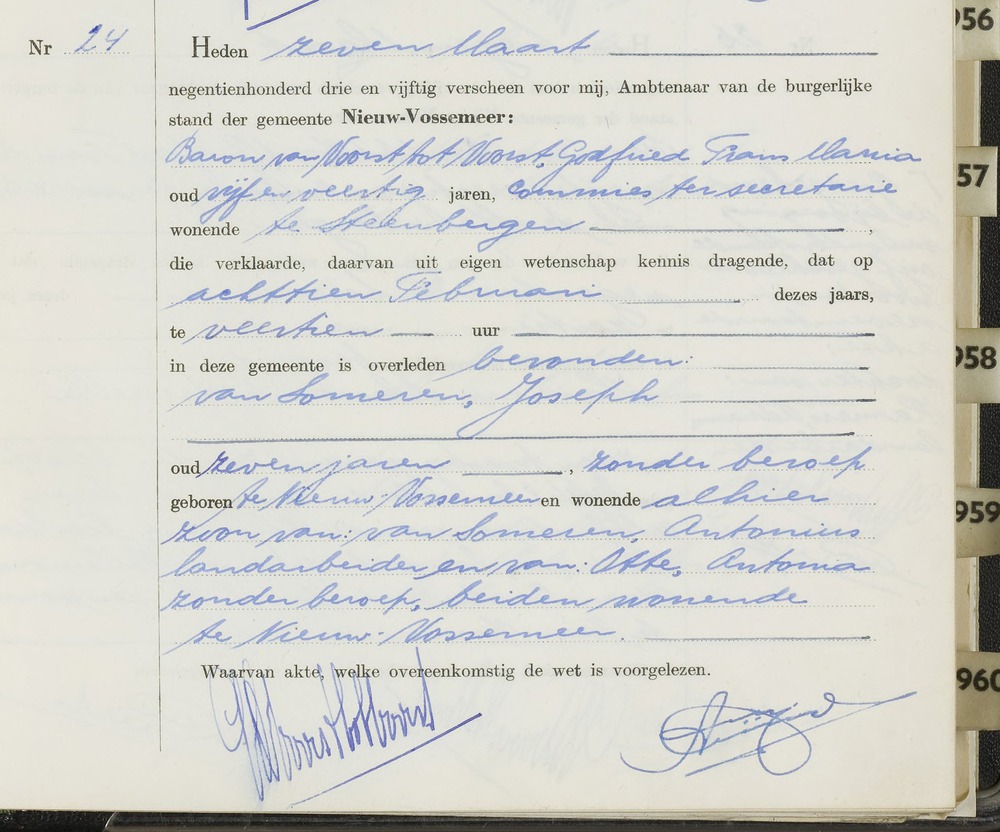 Nr 24
Heden zeven Maart
negentienhonderd drie en vijftig verscheen voor mij, Ambtenaar van de burgerlijke
stand der gemeente Nieuw-Vossemeer:
Baron van Voorst tot Voorst, Godfried Frans Maria
oud vijf en veertig jaren, commies ter secretarie
wonende te Steenbergen ,
die verklaarde, daarvan uit eigen wetenschap kennis dragende, dat op
achttien Februari dezes jaars,
te veertien uur
in deze gemeente is overleden bevonden:
van Someren, Joseph
oud zeven jaren , zonder beroep
geboren te Nieuw-Vossemeer en wonende alhier
zoon van: van Someren, Antonius
landarbeider, en van: Otte, Antonia
zonder beroep, beiden wonende
te Nieuw-Vossemeer.
Waarvan akte, welke overeenkomstig de wet is voorgelezen.
956
957
958
959
960